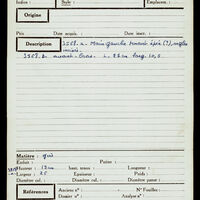 Indice : Style : Emplacem. :
Origine
Prix Date acquis. : Date inv. :
Description 3508.2. Main gauche tenant épée (?), ongles
incisés.
3508.2 avant-bras. L. 22cm larg. 10,5.
Matière : gris
Enduit : Patine :
Hauteur : 12cm haut. tenon : haut. totale :
Largeur : 25 Epaisseur : Poids :
Diamètre col. : Diamètre :
Références Anciens nos : No Fouilles :
Dossier no : Autres nos :